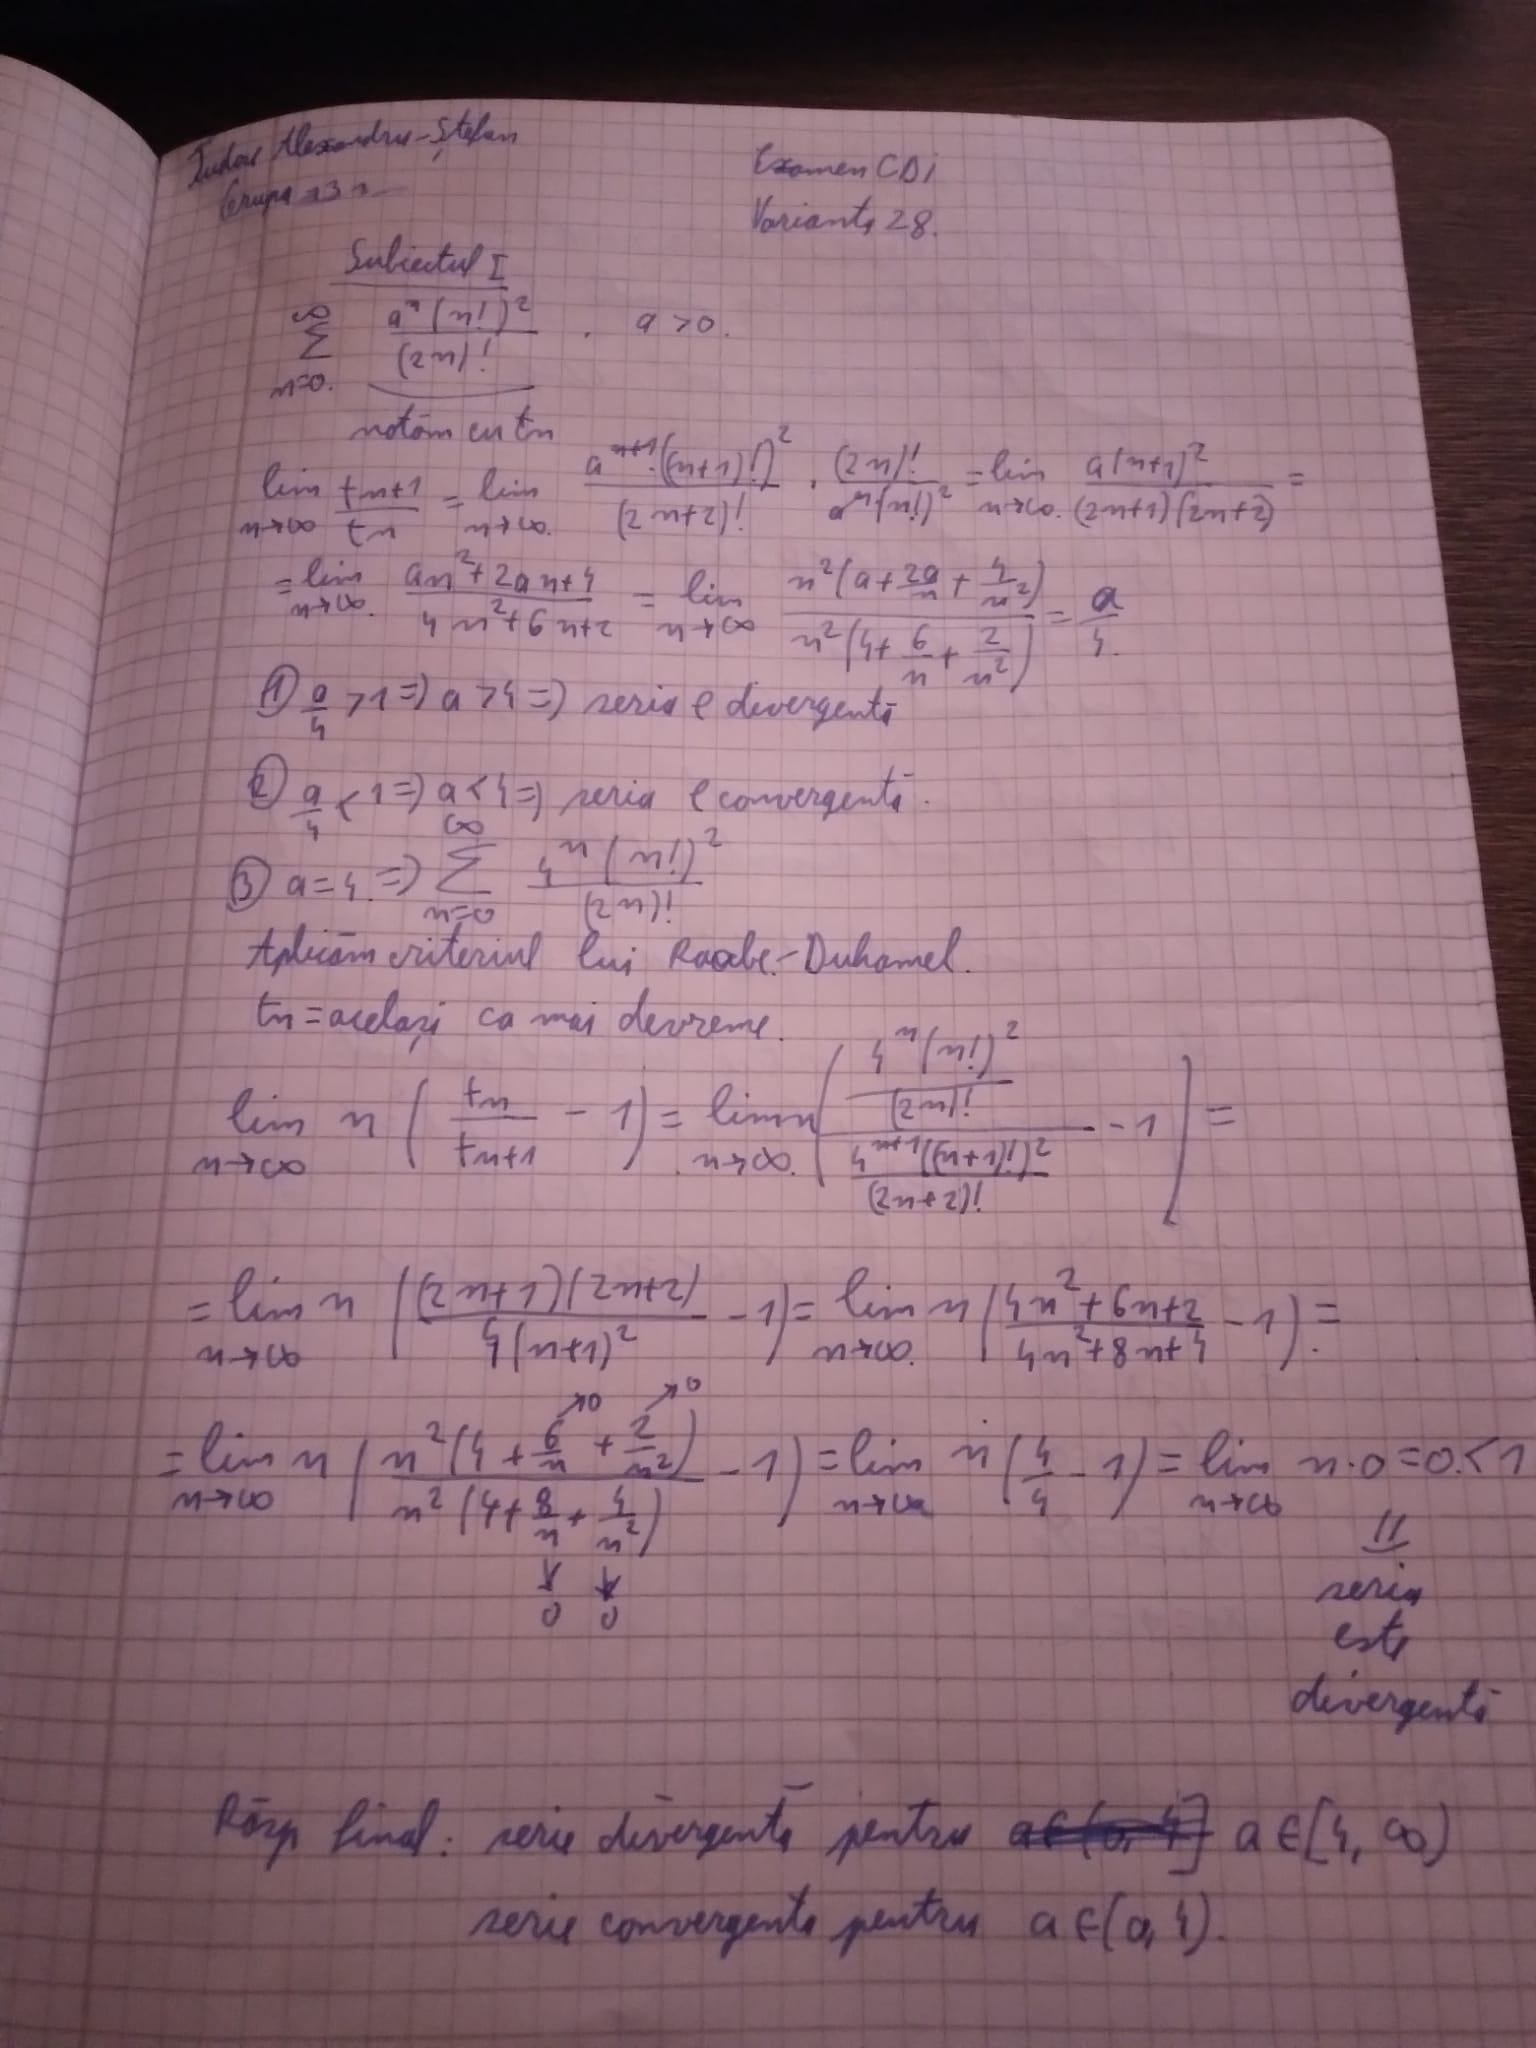 Tudor Alexandru-Ștefan
Grupa 131
Examen CDI
Varianta 28.
Subiectul I
∞ ∑ n=0. a^n (n!)^2 / (2n)! . a > 0.
notăm cu tn
lim n→∞ tn+1/tn = lim n→∞. a^(n+1)·((n+1)!)^2 / (2n+2)! · (2n)! / a^n(n!)^2 = lim n→∞. a(n+1)^2 / (2n+1)(2n+2) =
= lim n→∞. (an^2+2an+4) / (4n^2+6n+2) = lim n→∞ n^2(a + 2a/n + 4/n^2) / n^2(4 + 6/n + 2/n^2) = a/4.
① a/4 > 1 => a > 4 => seria e divergentă
② a/4 < 1 => a < 4 => seria e convergentă.
③ a = 4. => ∞ ∑ n=0 4^n (n!)^2 / (2n)!
Aplicăm criteriul lui Raabe-Duhamel.
tn = același ca mai devreme.
lim n→∞ n ( tn/tn+1 - 1 ) = lim n→∞. n ( (4^n(n!)^2 / (2n)!) / (4^(n+1)((n+1)!)^2 / (2n+2)!) - 1 ) =
= lim n→∞ n ( (2n+1)(2n+2) / 4(n+1)^2 - 1 ) = lim n→∞. n ( (4n^2+6n+2) / (4n^2+8n+4) - 1 ) =
→0 →0
= lim n→∞ n ( n^2(4 + 6/n + 2/n^2) / n^2(4 + 8/n + 4/n^2) - 1 ) = lim n→∞ n ( 4/4 - 1 ) = lim n→∞ n·0 = 0 < 1
↓ ↓
0 0
⇓
seria
este
divergentă
Răsp final: serie divergentă pentru a ∈ [4, ∞)
serie convergentă pentru a ∈ (0, 4).